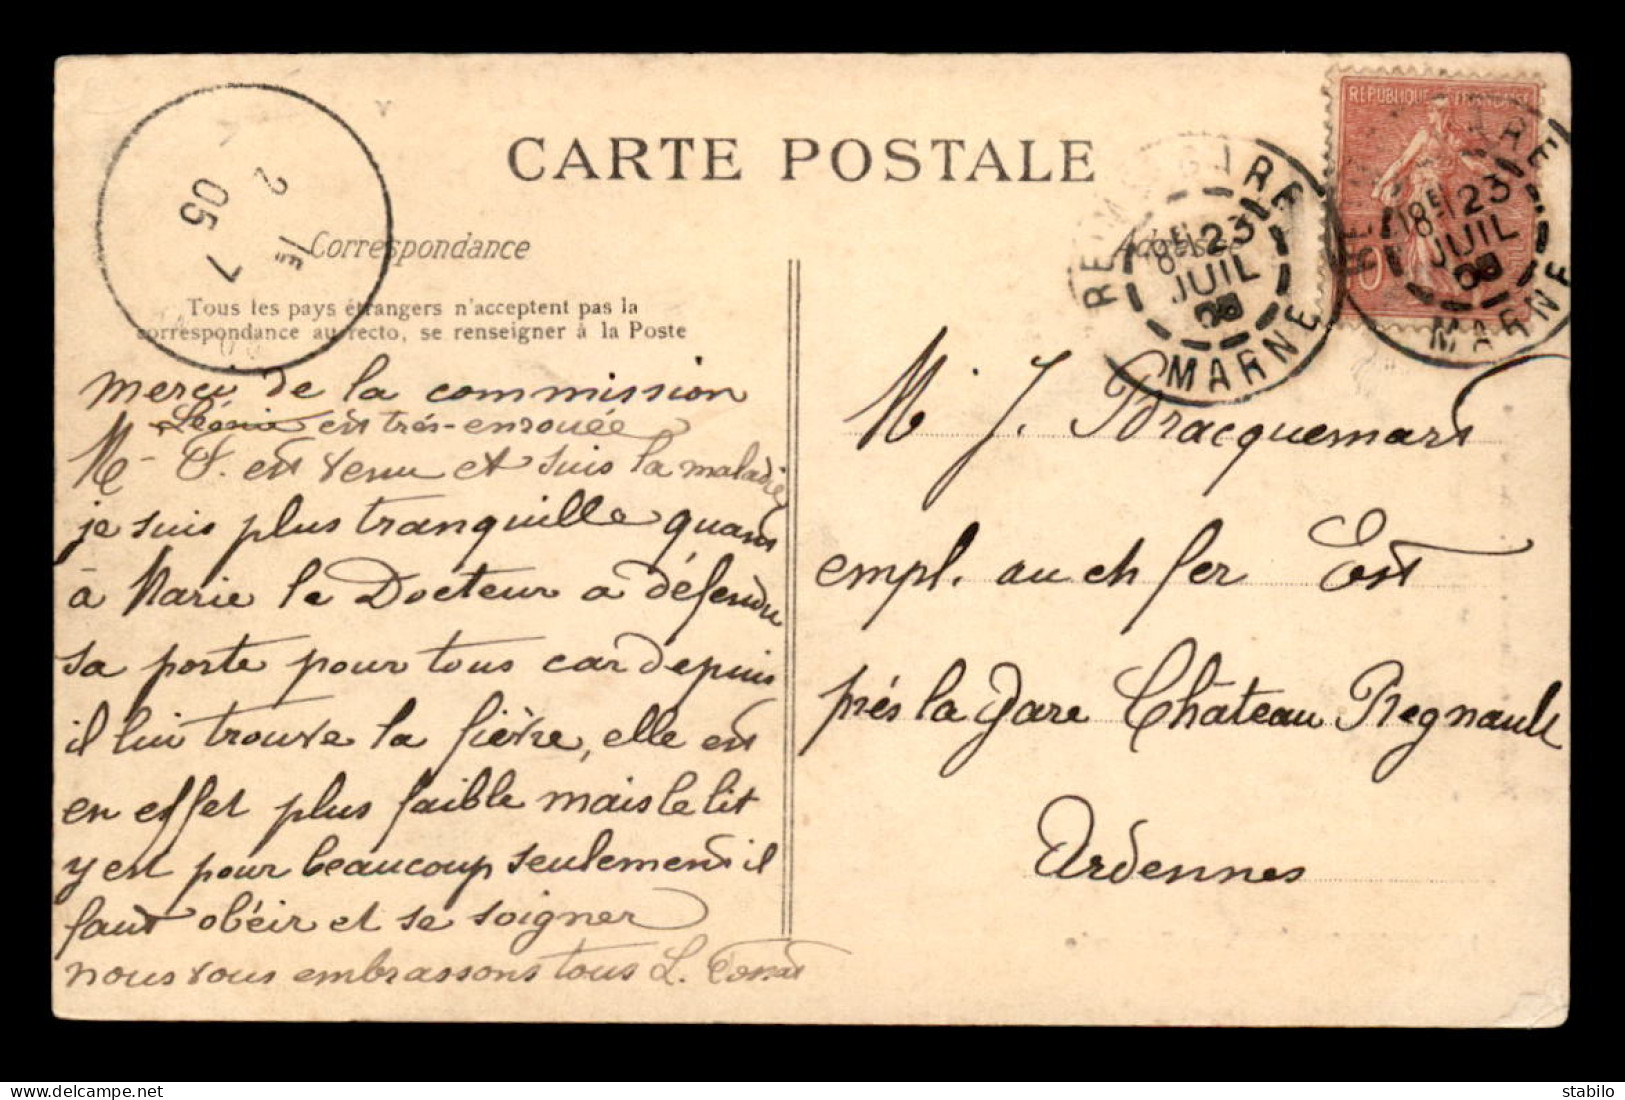 CARTE POSTALE
Correspondance
Tous les pays étrangers n'acceptent pas la
correspondance au recto, se renseigner à la Poste
merci de la commission
Léonie est très-enrouée
Mr F. est venu et suis la maladie
je suis plus tranquille quant
à Marie le Docteur a défendu
sa porte pour tous car depuis
il lui trouve la fièvre, elle est
en effet plus faible mais le lit
y est pour beaucoup seulement il
faut obéir et se soigner
nous vous embrassons tous L.
REPUBLIQUE FRANÇAISE
10
MARNE
18E 23
JUIL
MARNE
8E 23
JUIL
2E
05 7
Adresse
M. J. Bracquemart
empl. au ch fer Est
près la Gare Château Regnault
Ardennes
stabilo